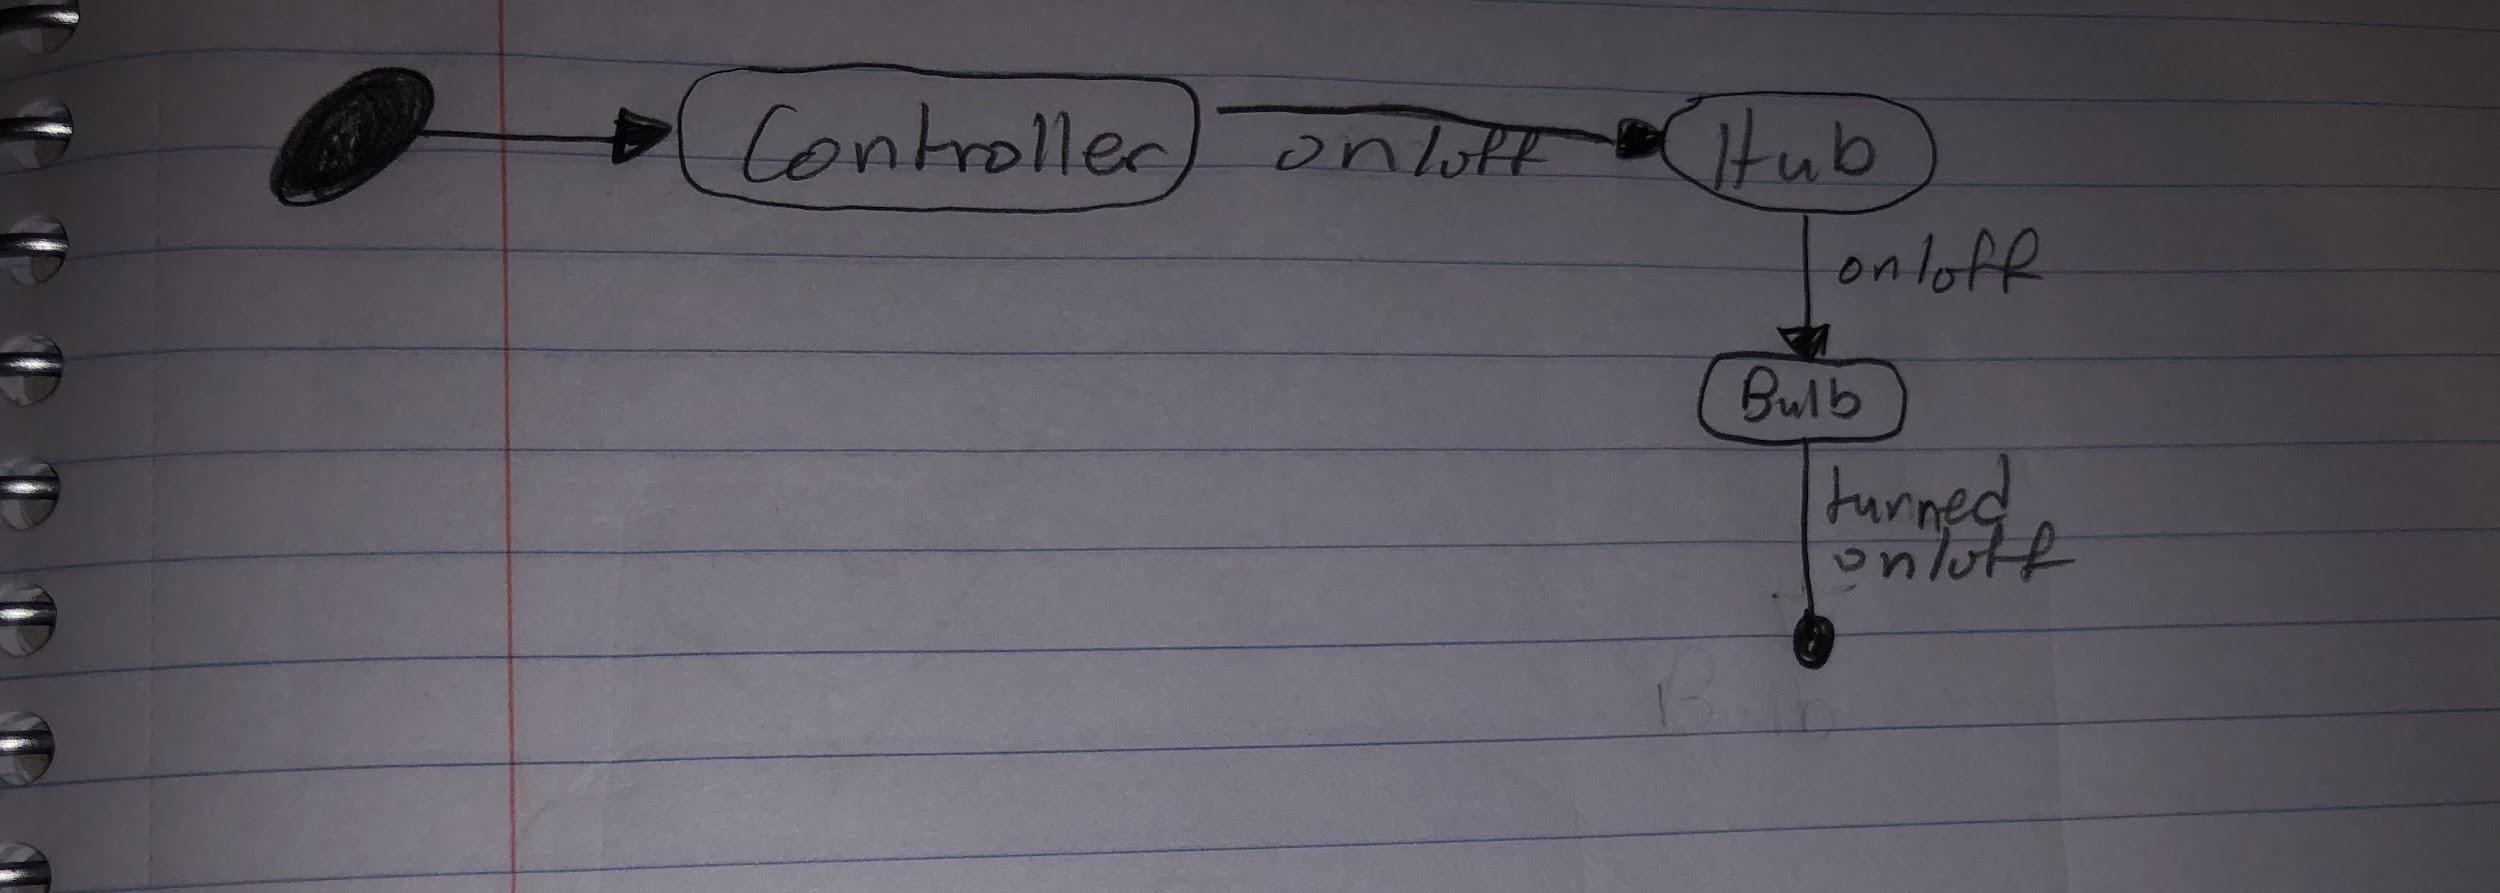 Controller
on/off
Hub
on/off
Bulb
turned
on/off
Bulb